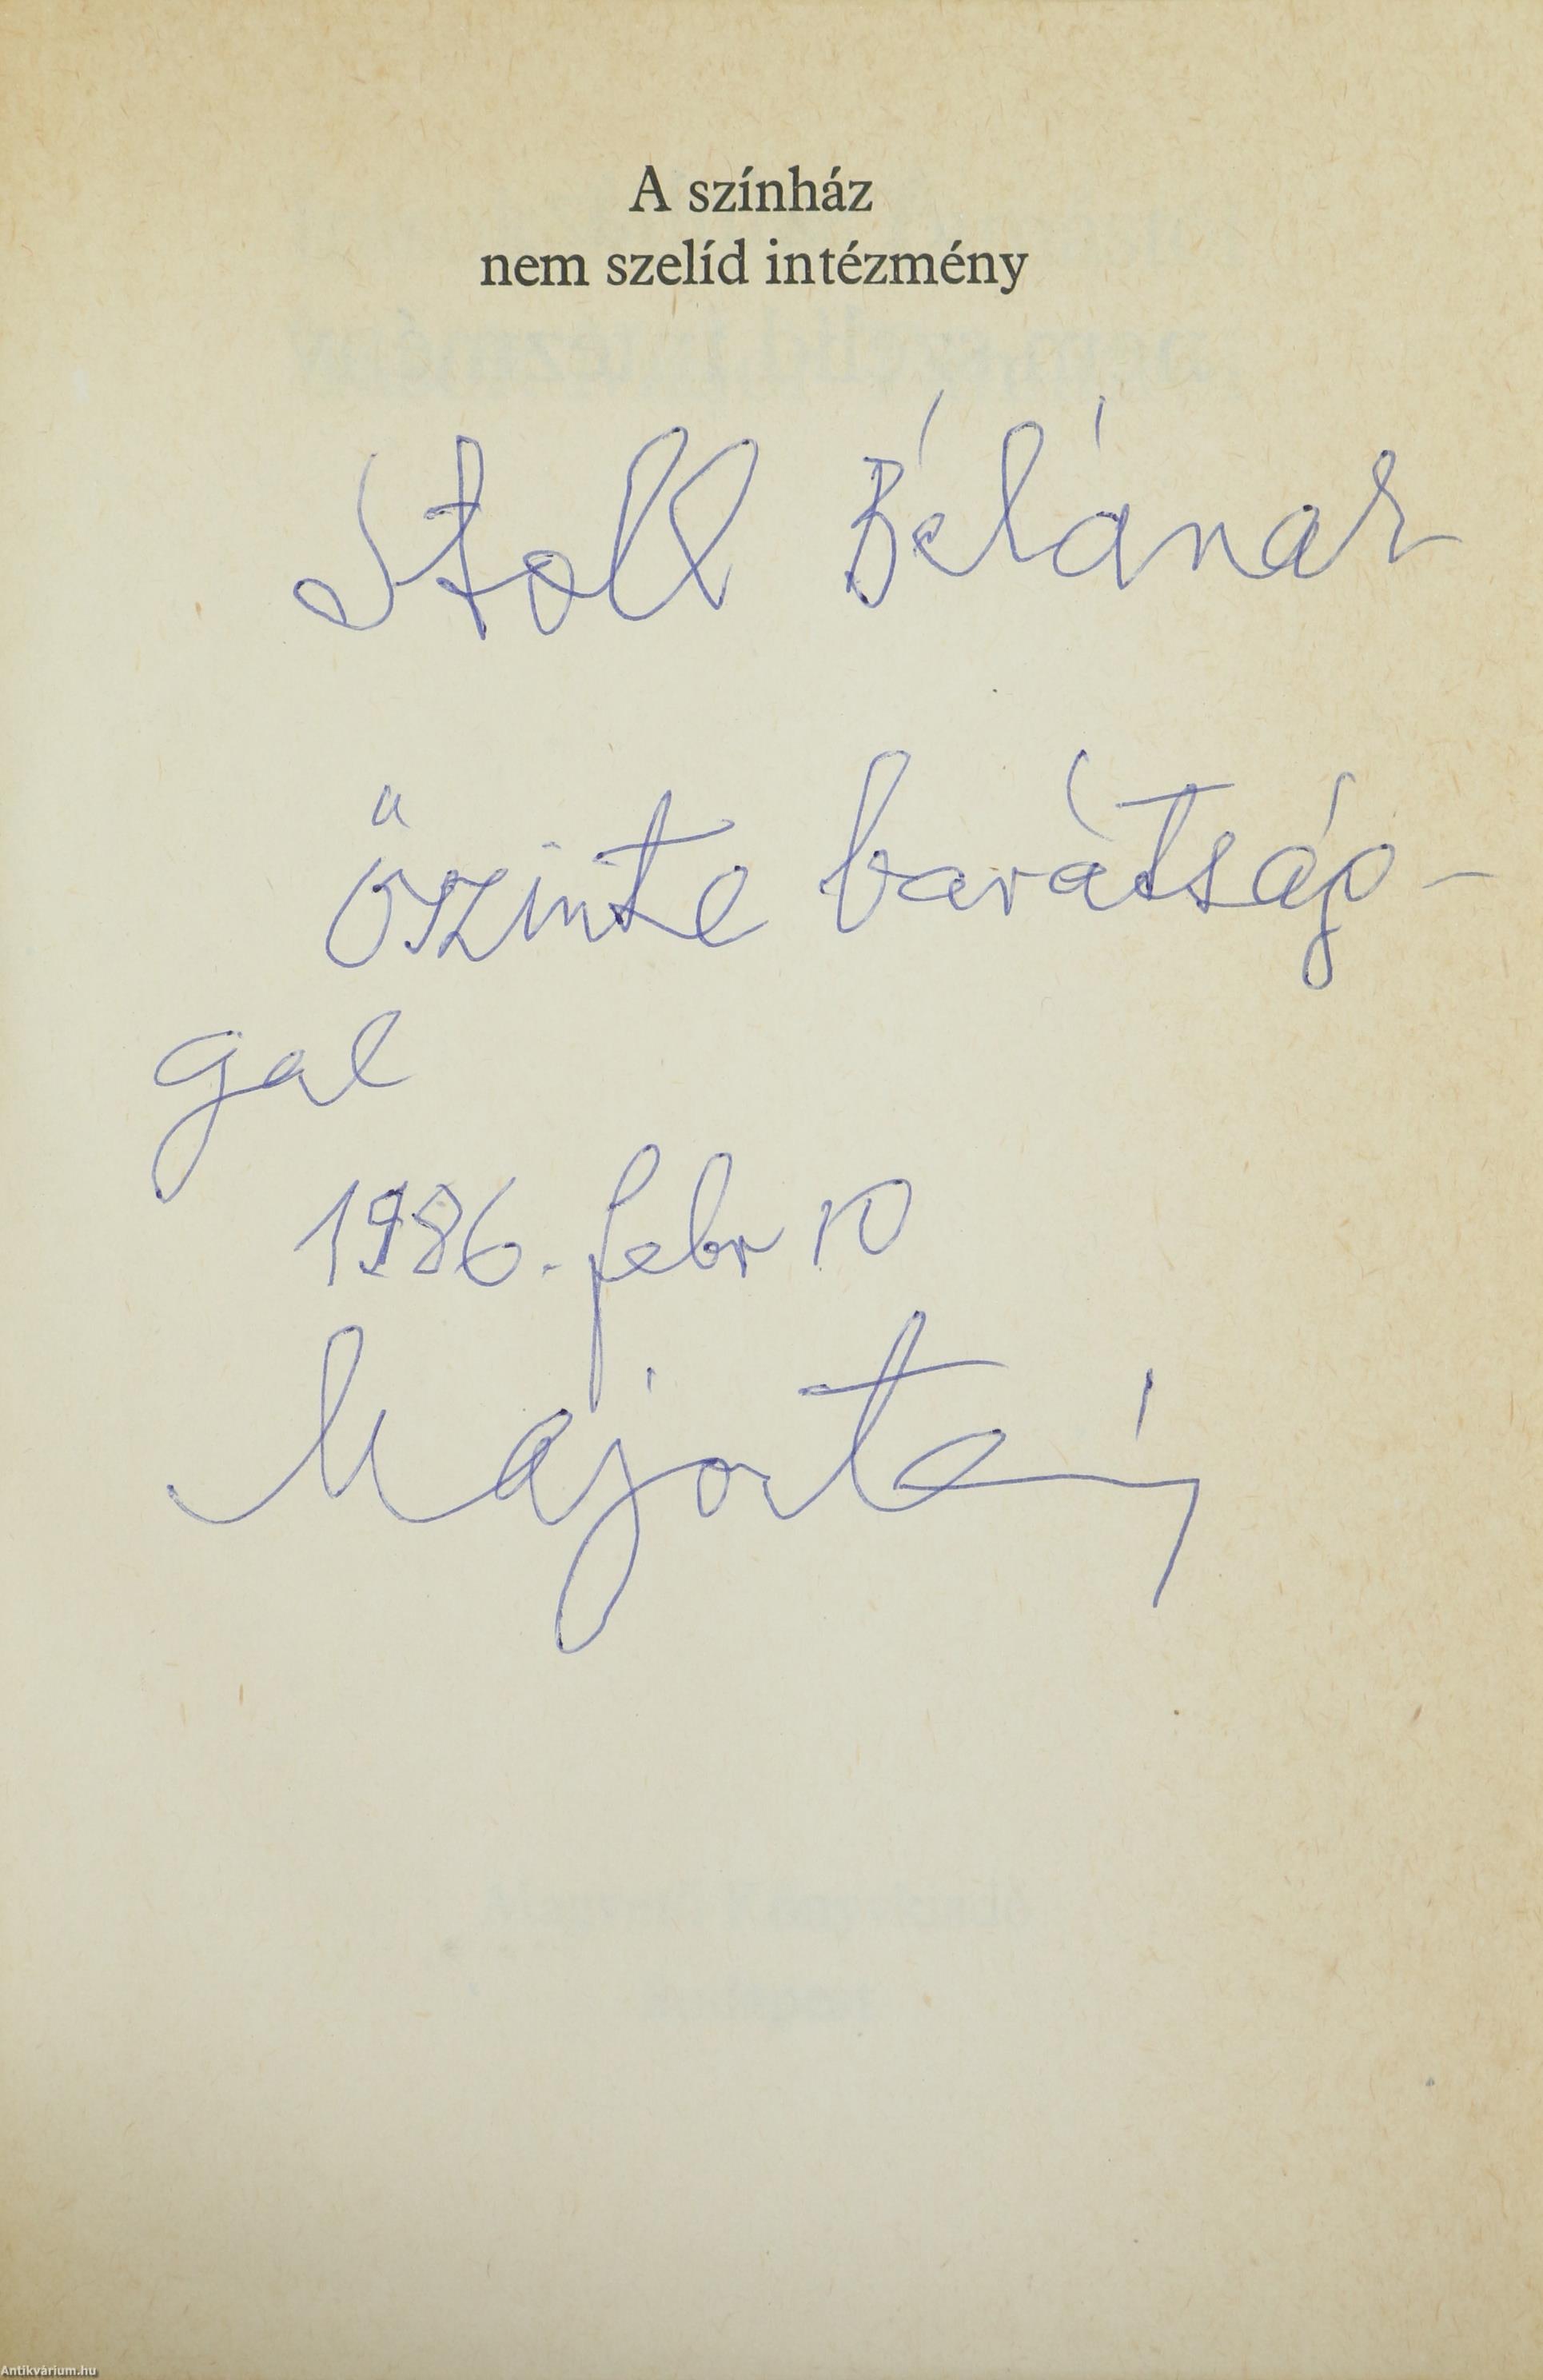 A színház
nem szelíd intézmény
Stoll Bélának
őszinte barátság-
gal
1986. febr 10
Major Tamás
Antikvárium.hu